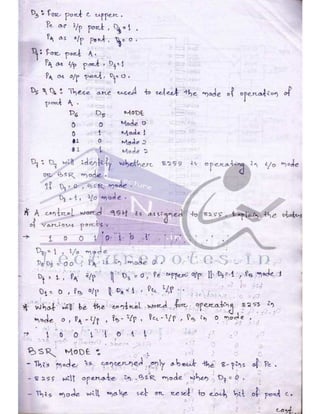 D3 : For port C upper.
Pc as i/p port, D3=1.
PA as o/p port, D3=0.
D4 : For port A.
PA as i/p port, D4=1
PA as o/p port, D4=0.
D5 & D6 : These are used to select the mode of operation of
port A.
D6 D5 MODE
0 0 Mode 0
0 1 Mode 1
1 0 Mode 2
1 1 Mode 2
D7 : D7 will identify whether 8255 is operating in i/o mode
or BSR mode.
If D7=0, BSR mode
D7=1, i/o mode.
A control word 95H is assigned to 8255. Explain the status
of various ports.
→ 1 0 0 1 0 1 0 1
D7=1, i/o mode
D6D5=00, PA in mode 0
D4=1, PA i/p || D3=0, Pc upper o/p || D2=1, PB mode 1
D1=0, PB o/p || D0=1, PCL i/p.
What will be the control word for operating 8255 in
mode 0, PA-i/p, PB-i/p, PCL-i/p, PB in 0 mode.
→ 1 0 0 1 1 0 1 1
BSR MODE :
- This mode is concerned only about the 8-pins of Pc.
- 8255 will operate in BSR mode when D7=0.
- This mode will make set or reset to each bit of port C.
Cont.